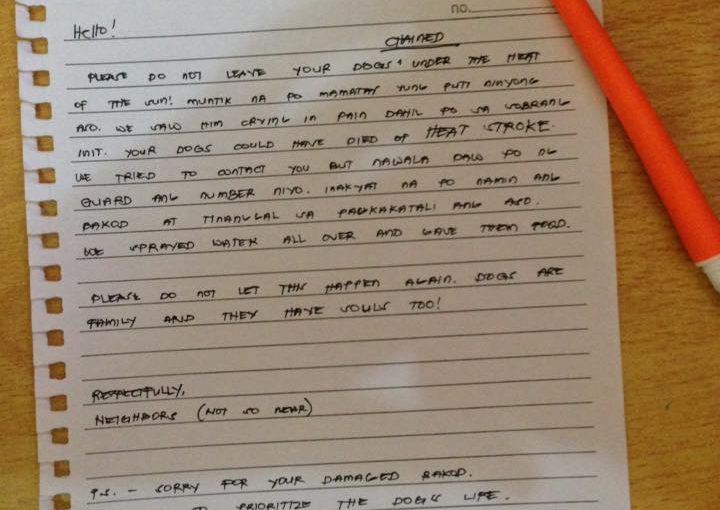 no.
Hello!
CHAINED
PLEASE DO NOT LEAVE YOUR DOGS ^ UNDER THE HEAT
OF THE SUN! MUNTIK NA PO MAMATAY YUNG PUTI NINYONG
ASO. WE SAW HIM CRYING IN PAIN DAHIL PO SA SOBRANG
INIT. YOUR DOGS COULD HAVE DIED OF HEAT STROKE.
WE TRIED TO CONTACT YOU BUT NAWALA DAW PO NG
GUARD ANG NUMBER NIYO. INAKYAT NA PO NAMIN ANG
BAKOD AT TINANGGAL SA PAGKAKATALI ANG ASO.
WE SPRAYED WATER ALL OVER AND GAVE THEM FOOD.
PLEASE DO NOT LET THIS HAPPEN AGAIN. DOGS ARE
FAMILY AND THEY HAVE SOULS TOO!
RESPECTFULLY,
NEIGHBORS (NOT SO NEAR)
P.S. - SORRY FOR YOUR DAMAGED BAKOD.
PRIORITIZE THE DOG'S LIFE.